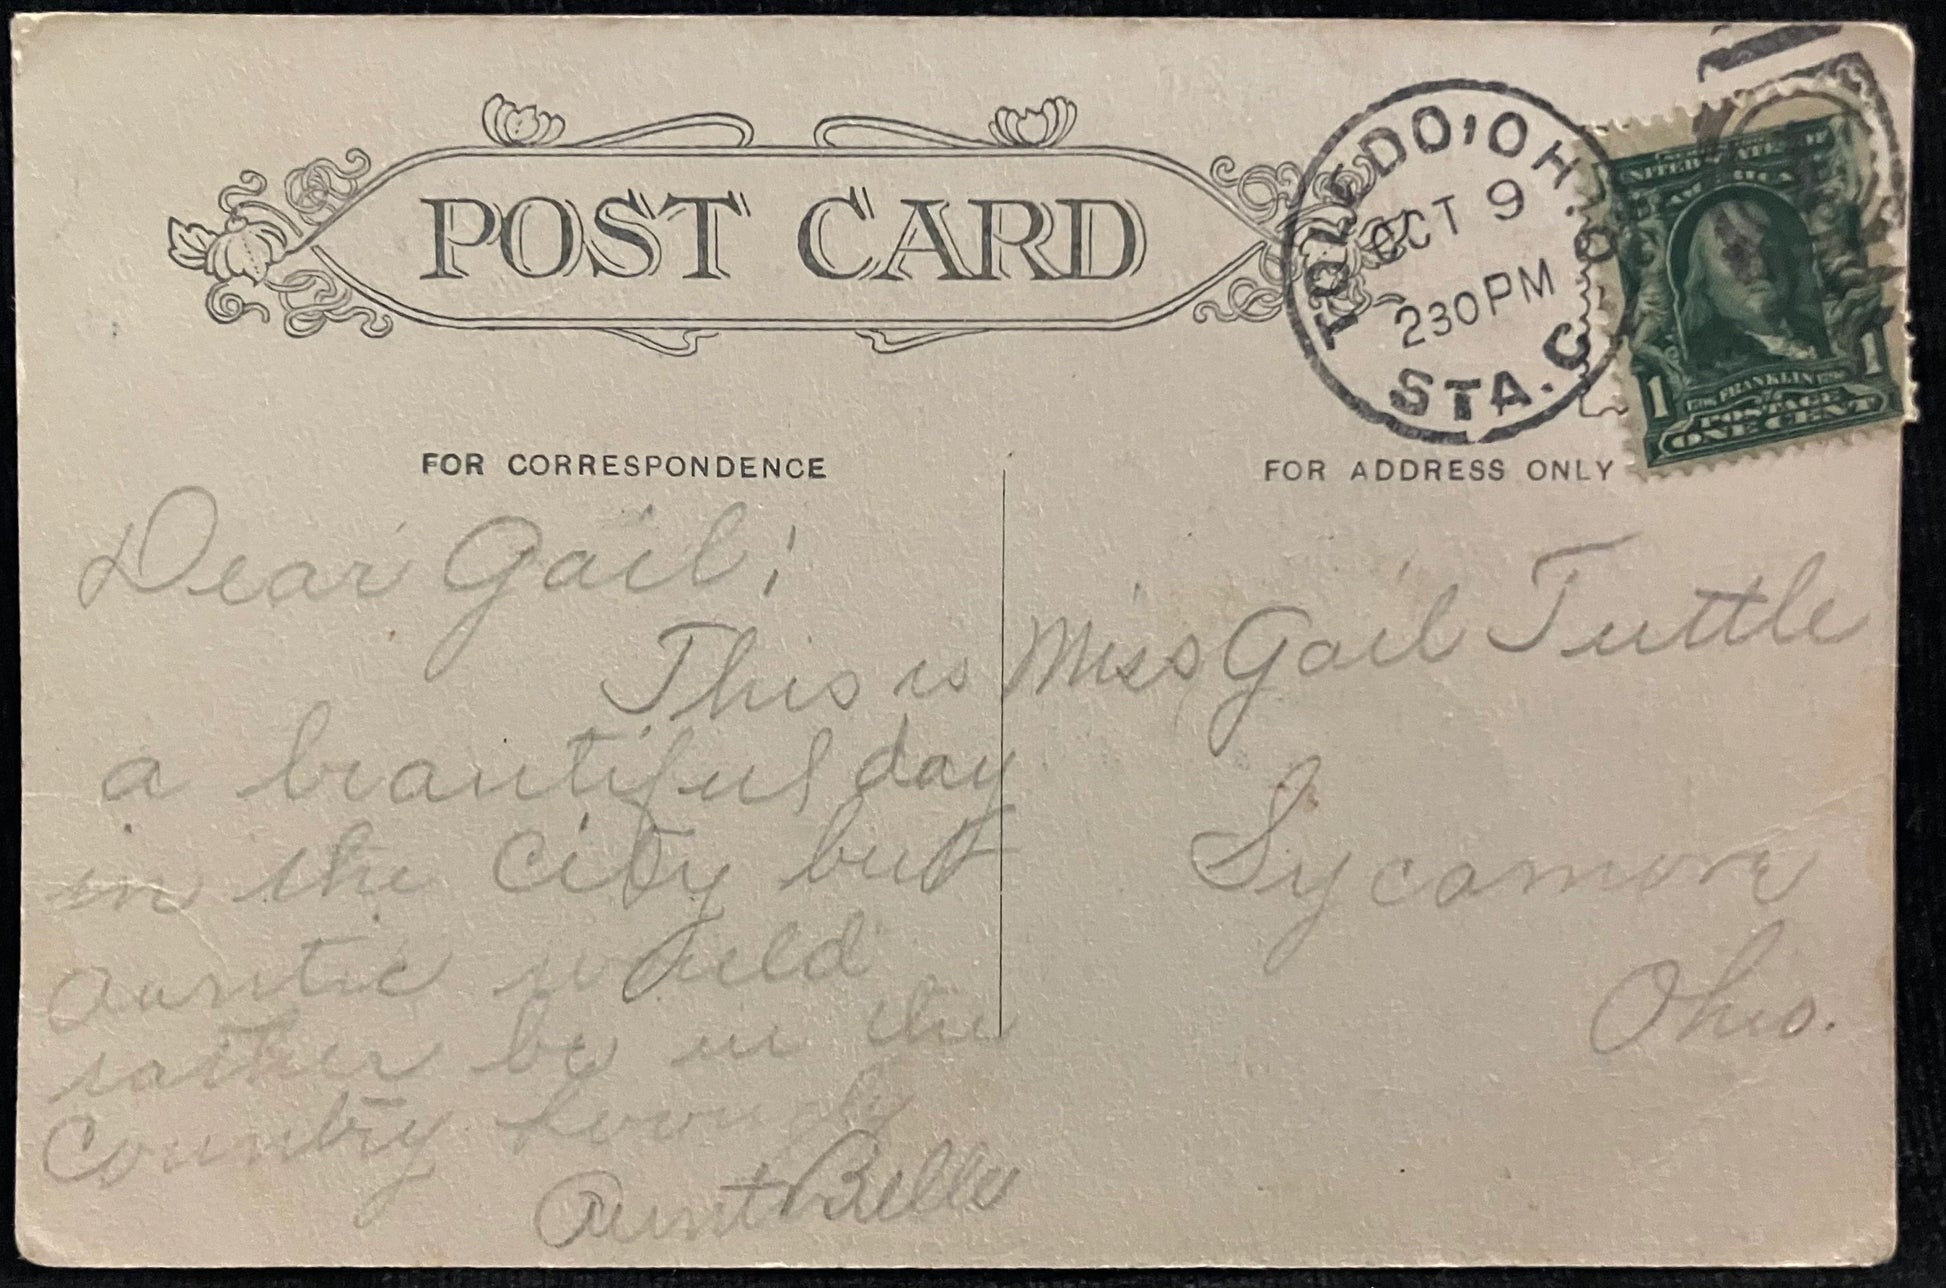 POST CARD
TOLEDO, OHIO
OCT 9
230 PM
STA. C
UNITED STATES OF
AMERICA
FRANKLIN
1 1
POSTAGE
ONE CENT
FOR CORRESPONDENCE
Dear Gail;
This is
a beautiful day
in the City but
auntie would
rather be in the
Country. Lovingly
Aunt Belle
FOR ADDRESS ONLY
Miss Gail Tuttle
Sycamore
Ohio.